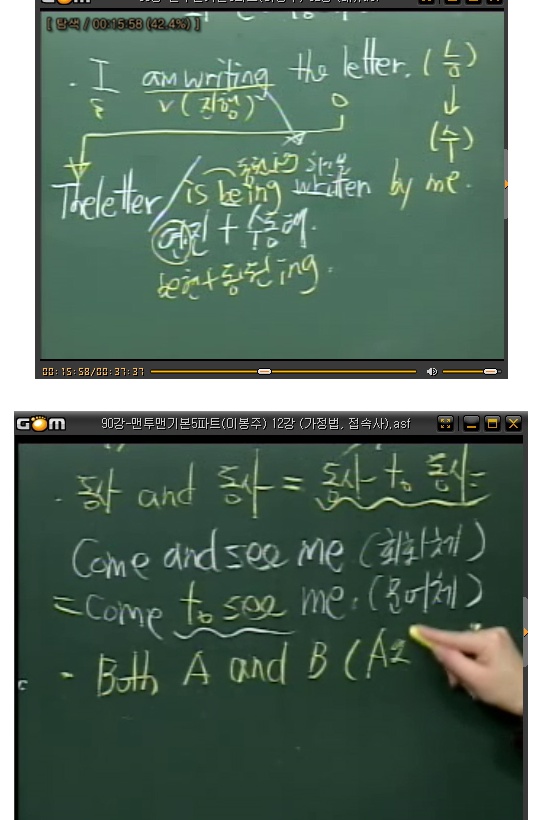 [ 탐색 / 00:15:58 (42.4%) ]
· I am writing the letter. (능)
s v (진행) o ↓
(수)
동원ing 과분
The letter / is being written by me.
현진 + 수동태.
be현+동원ing.
00:15:58/00:37:37
GOM 90강-맨투맨기본5파트(이봉주) 12강 (가정법, 접속사),asf
· 동사 and 동사 = 동사 to 동사=
Come and see me (회화체)
= Come to see me. (문어체)
- Both A and B (A